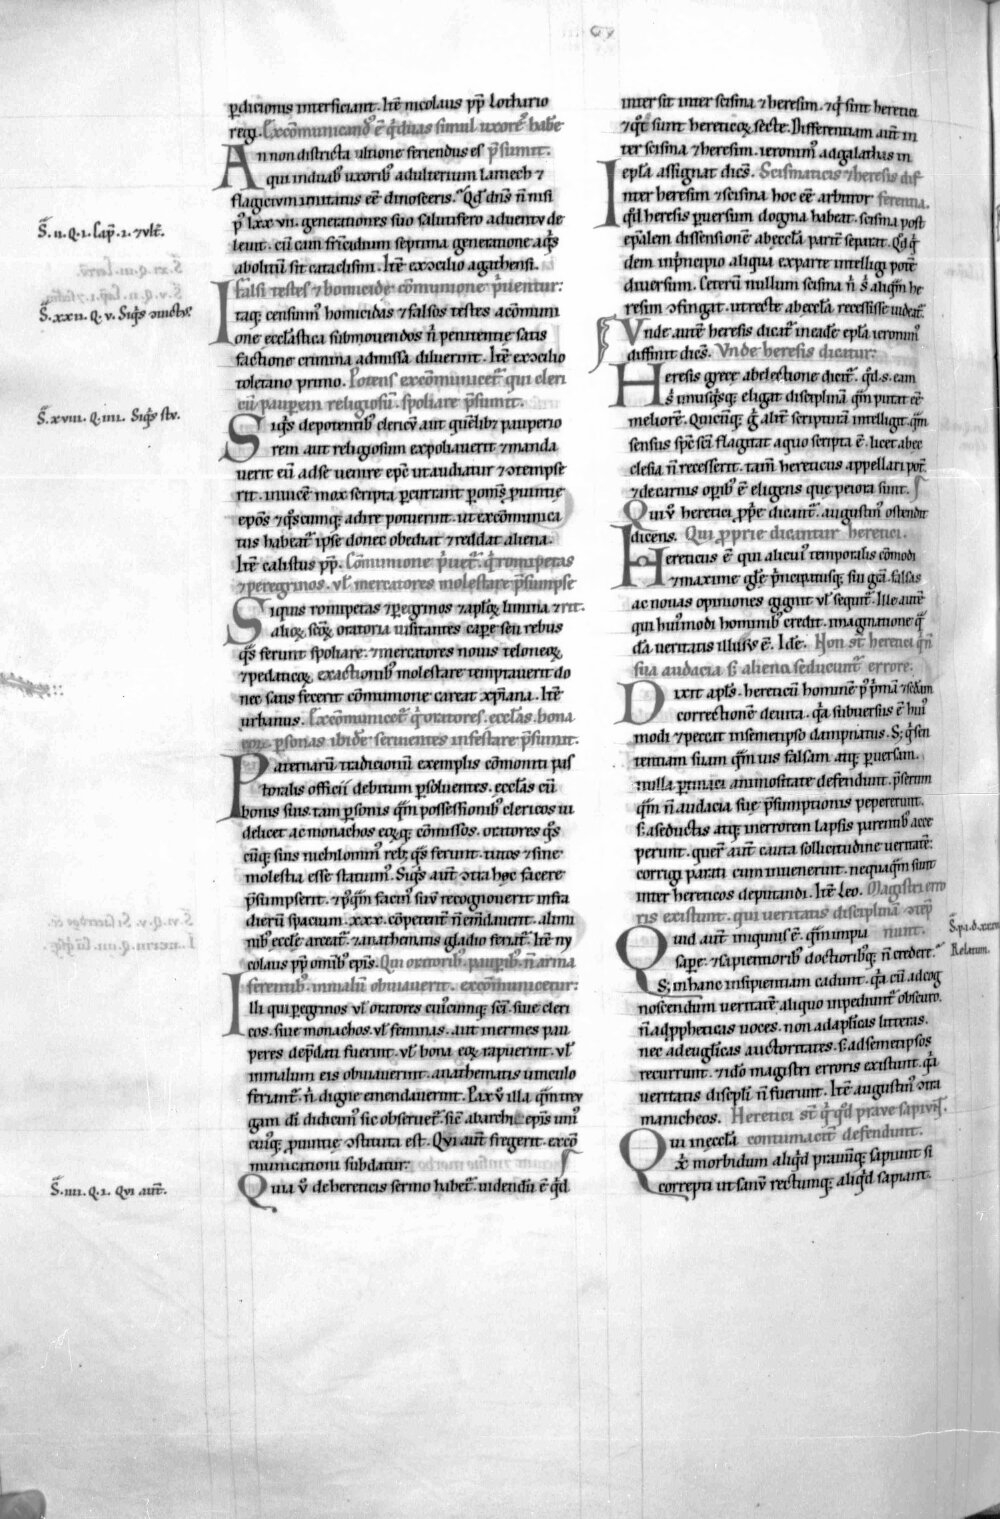 pdicionis interficiant. Itē nicolaus pp̄ lothario
regi. Excōmunicand' ē q̇ duas simul uxores habē
An non districta ultione feriendus es p̄sumit.
qui induab' uxorib' adulterium lamech ⁊
flagicium imitatus eē dinosceris. Qd' dn̄s n̄ nisi
p' lxx vii. generationes suo salutifero adventu de
leuit. cū cain fr̄icidium septima generatione aq̇s
abolitū sit cataclismi. Itē ex ɔcilio agathensi.
Falsi testes ⁊ homicide cōmunione ṗuentur:
Itaq; censuim' homicidas ⁊ falsos testes acōmuni
one ecclastica submouendos n̄ penitentie satis
factione crimina admissa diluerint. Itē ex ɔcilio
toletano primo. Potens excōmunicet' qui cleri
cū pauperem religiosū. spoliare p̄sumit.
Siq̇s depotentib' clericū aut quēlib; pauperio
rem aut religiosum expoliauerit ⁊ manda
uerit eū adse uenire epc̄ ut audiatur ⁊ ɔtempse
rit. inuicē mox scripta pcurrant p om̄s puintie
epos̄ ⁊ q̇scumq; adire potuerint. ut excōmunica
tus habeat' ipse donec obediat ⁊ reddat aliena.
Itē calistus pp̄. Cōmunione ṗuet'. q̇ romipetas
⁊ peregrinos. ul' mercatores molestare p̄sumpse
Siquis romipetas ⁊ pegrinos ⁊ aplōꝝ limina ⁊ rit.
alioꝝ scōꝝ oratoria uisitantes cape seu rebus
q̄s ferunt spoliare. ⁊ mercatores nouis teloneoꝝ
⁊ pedaticoꝝ exactionib' molestare temptauerit do
nec satis fecerit cōmunione careat xp̄iana. Itē
urbanus. Excōmunicet' q̇ oratores. eccl'as. bona
eoꝝ. psonas ibidē seruientes infestare p̄sumit.
Paternarū tradicionū exemplis cōmoniti pas
toralis officii debitum psoluentes. eccl'as cū
bonis suis. tam psonis qm̄ possessionib' clericos ui
delicet ac monachos eoꝝq; cōuersos. oratores q̇s
cūq; suis nichilomin' reb; q̄s ferunt. tutos ⁊ sine
molestia esse statuim'. Siq̇s aut̄ ɔtra hoc facere
p̄sumpserit. ⁊ p'q̄m facin' suū recognouerit infra
dierū spacium .xxx. cōpetent' n̄ emdauerit. alimi
nib' ecclie arceat'. ⁊ anathematis gladio feriat'. Itē ny
colaus pp̄ omib' epis̄. Qui oratorib'. pauperib'. n̄ arma
ferentib'. inmalū obuiauerit. excōmunicetur:
Illi qui pegrinos ul' oratores cuiuscumq; sc̄i. siue cleri
cos. siue monachos. ul' feminas. aut inermes pau
peres dep̄dati fuerint. ul' bona eoꝝ rapuerint. ul'
inmalum eis obuiauerint. anathematis uinculo
feriant'. n̄ digne emendauerint. Pax ū illa q̄m treu
gam di' dicim' sic obseruet'. sic' abarchi epis̄ uni'
cuiq; puintie ɔstituta est. Qui aut̄ fregerit. excō
municationi subdatur:
Quia ū de hereticis sermo habet'. uidendū ē q̇d
inter sit inter scisma ⁊ heresim. ⁊ q̇ sint heretici
⁊ q̄t sunt hereticoꝝ secte. Differentiam aut̄ in
ter scisma ⁊ heresim. ieronim' adgalathas in
epl'a assignat dicēs. Scismaticis ⁊ heresis dif
Inter heresim ⁊ scisma hoc eē arbitror ferentia.
qd' heresis puersum dogma habeat. scisma post
ep̄alem dissensionē abeccl'a pariter separat. Qd' q̇
dem inprincipio aliqua exparte intelligi potē
diuersum. Ceterū nullum scisma n̄ s' aliq̄m he
resim ɔfingat. ut recte abeccl'a recessisse uideat'.
Vnde autē heresis dicat' ineadē epl'a ieronim'
diffinit dicēs. Vnde heresis dicatur:
Heresis grece abelectione dicit'. q̇d .s. eam
s' unusq̇sq; eligat disciplinā q̄m putat eē
meliorē. Quicūq; g' alit' scripturā intelligit. q̄m
sensus sp̄c sc̄i flagitat aquo scripta ē. licet abec
clesia n̄ recesserit. tam̄ hereticus appellari pot'.
⁊ decarnis opib' ē eligens que peiora sunt.
Qui ū heretici pprie dicant'. augustin' ostendit
dicens. Qui pprie dicantur heretici.
Hereticus ē qui alicui' temporalis cōmodi
⁊ maxime gl'e principatusq; sui gr̄a. falsas
ac nouas opiniones gignit ul' sequit'. Ille autē
qui hui'modi hominib' credit. imaginatione q̄
da' ueritatis illusus ē. Idē. Non st̄ heretici q̇ n̄
sua audacia s; alieno seducunt' errore.
Dixit apl's. hereticū hominē p' p'mā ⁊ secdam
correctionē deuita. q̇a subuersus ē hui'
modi ⁊ peccat insemetipso dampnatus. S; q̇ sen
tentiam suam q̄muis falsam atq; puersam.
nulla ptinaci animositate defendunt. p̄sertim
q̄m n̄ audacia sue p̄sumptionis pepererunt.
s; aseductis atq; inerrorem lapsis parentib' acce
perunt. quer' aut̄ cauta sollicitudine ueritatē.
corrigi parati cum inuenerint. nequaq̄m sunt
inter hereticos deputandi. Itē leo. Magistri erro
ris existunt. qui ueritatis disciplinā ɔtep̄
Quid aut̄ iniquius ē. q̄m impia nunt.
sape. ⁊ sapientiorib' doctoribusq; n̄ credere.
S; in hanc insipientiam cadunt. q̇a cū adcog
noscendum ueritatē aliquo inpediunt' obscuro.
n̄ adppheticas uoces. non adaplicas litteras.
nec adeuglicas auctoritates. s; adsemetipsos
recurrunt. ⁊ ido magistri erroris existunt. q̇a
ueritatis discipli' n̄ fuerunt. Itē augustin' ɔtra
manicheos. Heretici st̄ q̇ q'd praue sapiunt.
Qui ineccl'a contumacit' defendunt.
xp̄i morbidum aliq̇d prauūq; sapiunt si
correpti ut sanū rectumq; aliq̇d sapiant.
S̄. ii. Q. i. Cap̄. i. ⁊ ult̄.
S̄. xxii. Q. v. Siq̇s ɔuictus.
S̄. xviii. Q. iiii. Siq̇s stu.
S̄. iiii. Q. i. Qui aut̄.
Relatum.